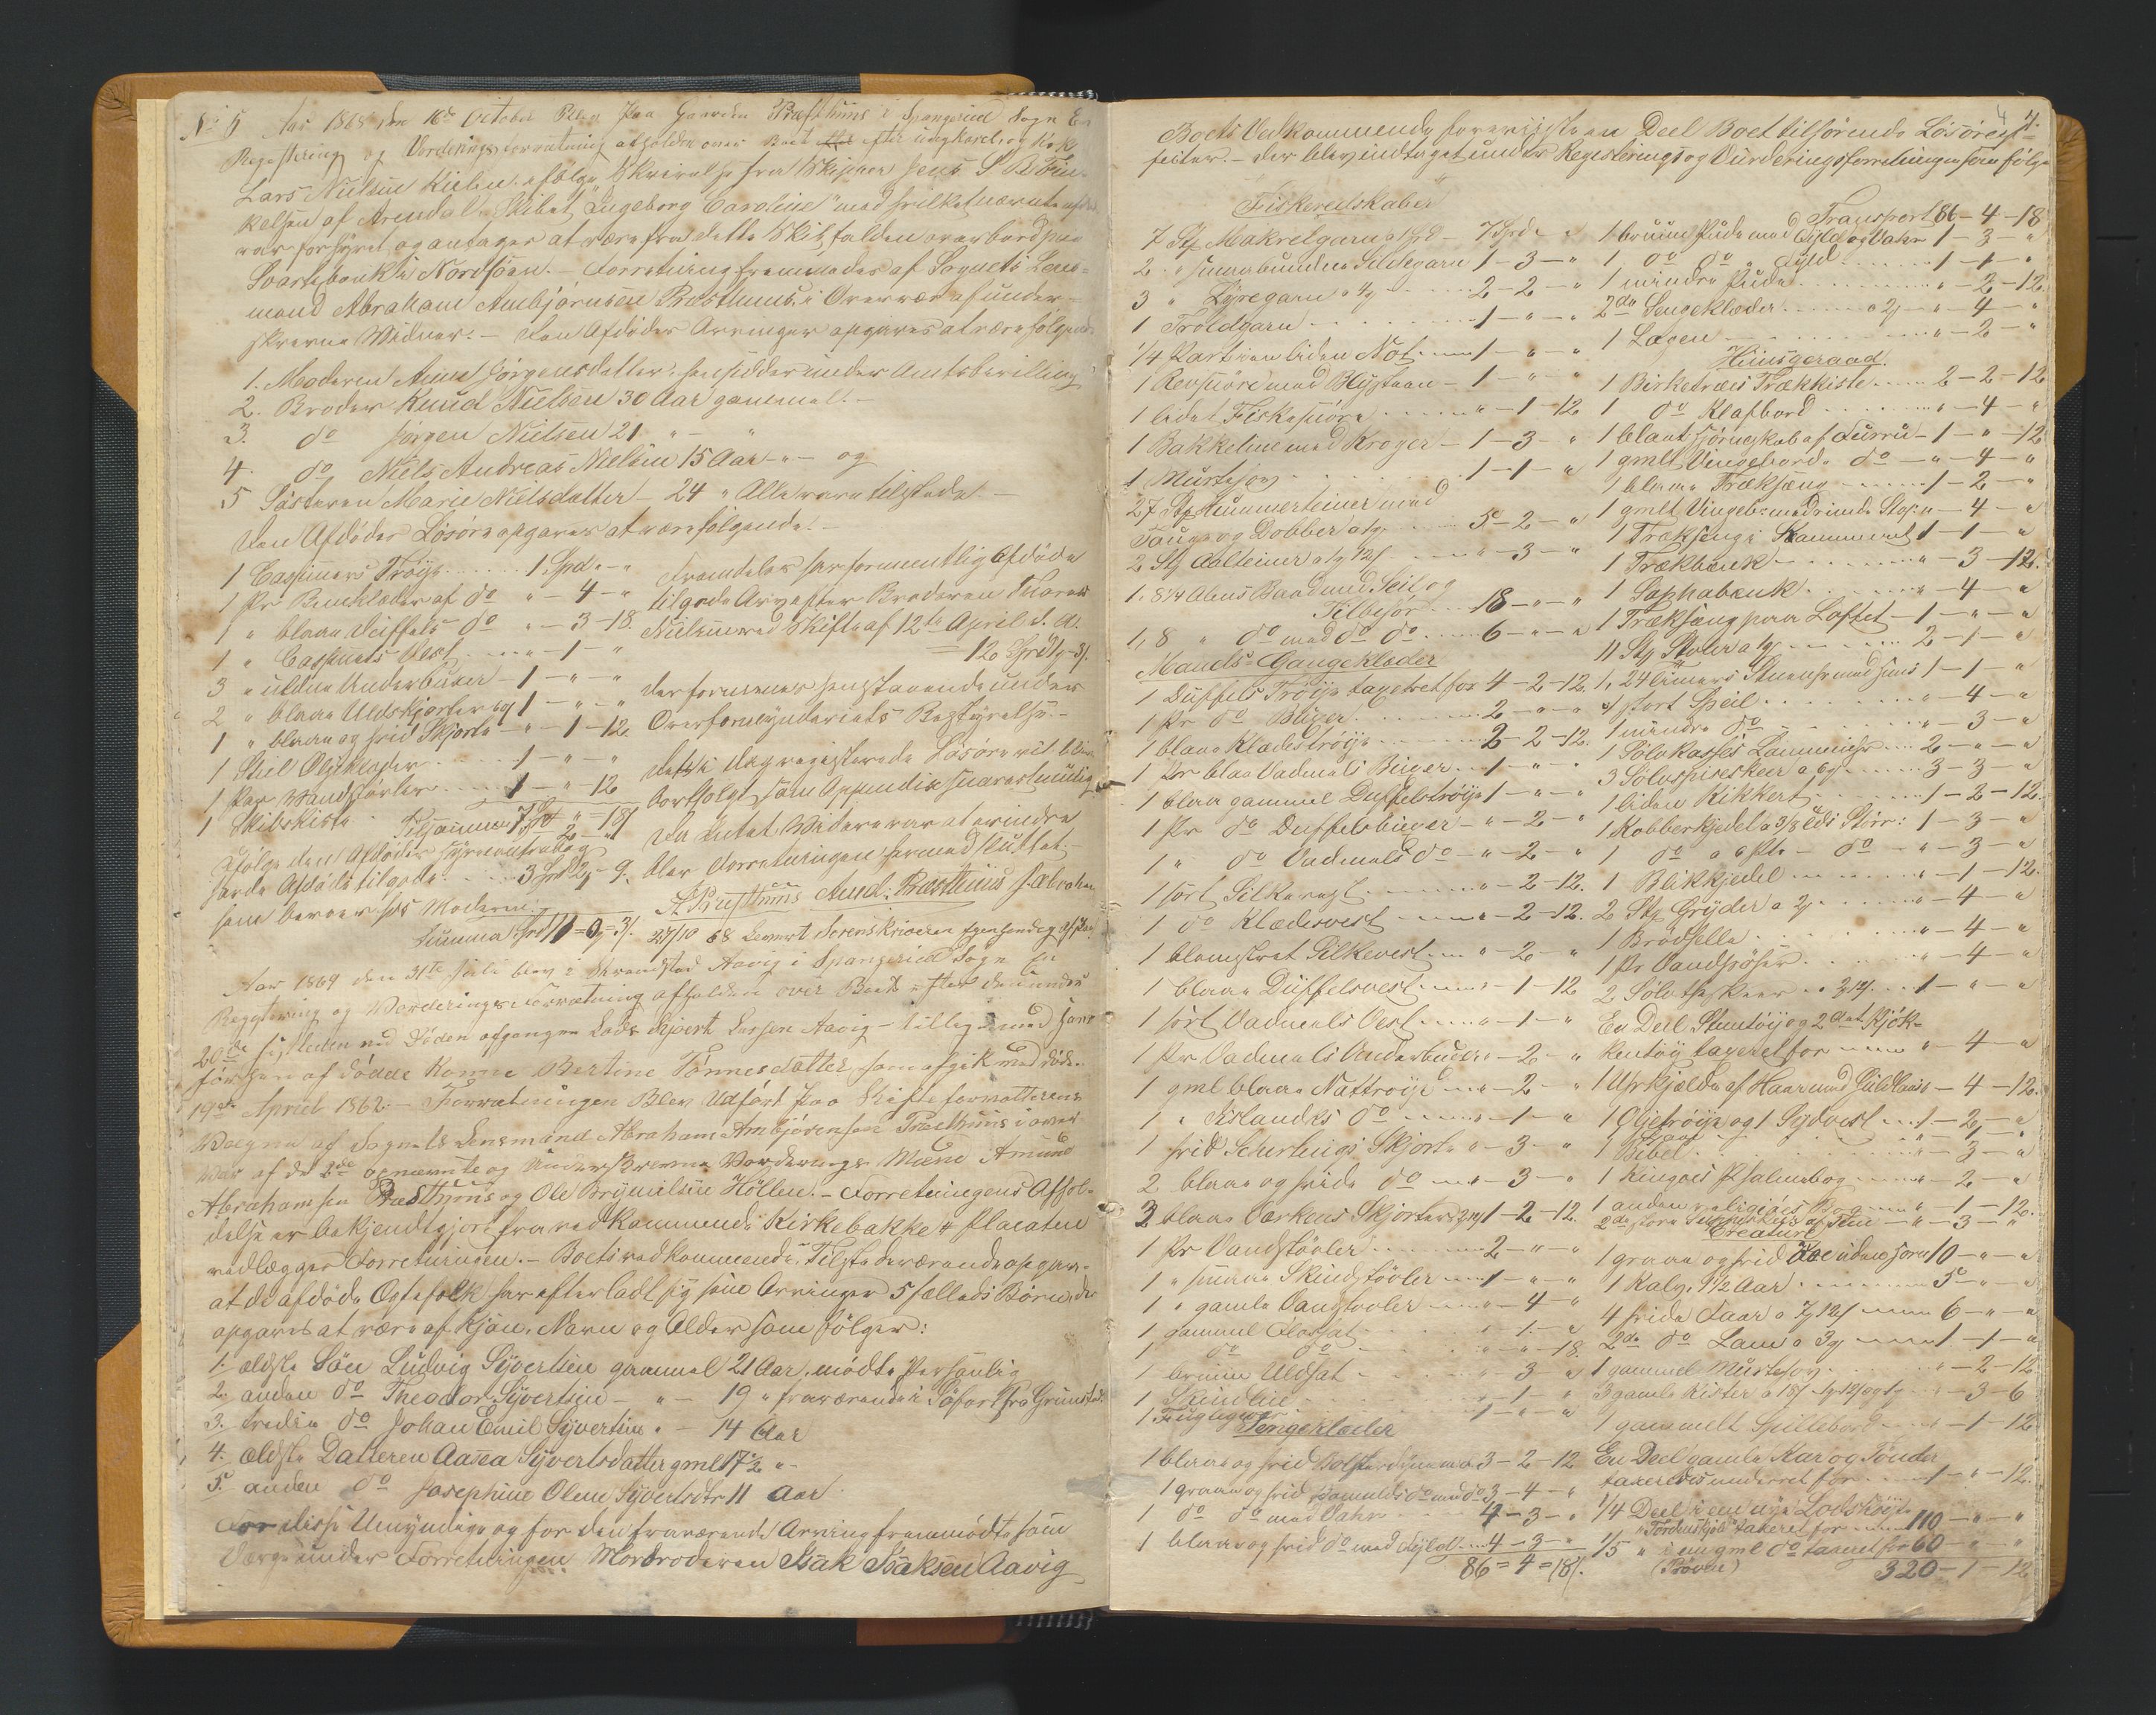 No 5 Aar 1868 den 16de October Blev paa Gaarden Præsthuus i Spangereid Sogn En
Registering og Vorderingsforretning afholden over Boet efter ungkarl og Kok
Lars Nielsen Kielen, ifølge Skrivelse fra Skipper Jens S. B. Ten-
kelsen af Arendal, Skibet "Ingeborg Caroline" med hvilket nævnte afdøde
var forhyret, og antages at være fra dette Skib falden overbord paa
Svartebank i Nordsøen. – Forretning fremmedes af Sognets Lens-
mand Abraham Ambjørnsen Præsthuus, i Overvær af under-
skrevne Vidner. – Den Afdødes Arvinger opgaves at være følgende
1. Moderen Anne Jørgensdatter, hensidder under Amtsbevilling
2. Broder Knud Nielsen 30 Aar gammel. –
3. do Jørgen Nielsen 21 " – "
4. do Niels Andreas Nielsen 15 Aar – " – og
5 Søsteren Marie Nielsdatter – 24 " Alle vare tilstede –
Den Afdødes Løsøre opgaves at være følgende! –
1 Cassimers Trøie 1 Spd " – "
1 Pr Benklæder af do " – 4 – "
1 " blaae Duffels do " – 3 – 18.
1 " Cassimets Vest " – 1 – "
3 " uldne Underbuxer – 1 – " – "
2 " blaae Uldskjorter og 1 – " – "
1 " blaae og hvid Skjorte – " – 1 – 12.
1 Skiel Oljeklæder 1 – " – "
1 Par Vandstøvler 1 – " – 12
1 Skibskiste
Tilsammen 7 Spd " = 18/
Ifølge den Afdødes Hyreontrabog
havde Afdøde tilgode 3 Spd 2 – 9.
som beroer hos Moderen
Summa Spd 11 = 0 = 3/.
Fremdeles har formentlig Afdøde
tilgode Arv efter Broderen Thomas
Nielsen ved Skifte af 12te April d. A.
= 12o Spd 1 – 3/.
der formenes henstaaende under
Overformynderiets Bestyrelse. –
Dette i Dag registerede Løsøre vil blive
bortsolgt som Appendix snarest mulig
Da Intet Videre var at erindre
blev Forretningen hermed sluttet –
A Præsthuus Amd: Præsthuus f. Abraham
27/10 68 Levert Sorenskriveren Egenhændig afskr
Aar 1869 den 31te Juli blev i Strandsted Aavig i Spangereid Sogn En
Registering og Vorderings Forretning afholden over Boet efter den under
20de hs sidsten ved Døden afgangne Lods Sivert Larsen Aavig – tilligemed hans
forhen afdøde Kone Bertine Tønnesdatter som afgik ved døden
19de April 1862. – Forretningen Blev Udført paa Skifteforvalterens
Vægne af Sognets Lensmand Abraham Ambjørnsen Præsthuus i over-
Vær af de 2de opnævnte og Underskrevne Vorderings Mænd Amund
Abrahamsen Præsthuus og Ole Brynildsen Høllen! – Forretningens Afhol-
delse er bekjendtgjort fra vedkommende Kirkebakke & Placaten
vedlægges Forretningen. – Boets vedkommende Tilstedeværende opgav
at de afdøde Ægtefolk har efterladt sig sine Arvinger 5 fælleds Børn, der
opgaves at være af Kjøn, Navn og Alder som følger:
1. ældste Søn Ludvig Syvertsen gammel 21 Aar, mødte Personlig
2. anden do Theodor Syvertsen – " – 19 " fraværende i Søfart fra Grimstad.
3. tredie do Johan Emil Syvertsen " – 14 Aar
4. ældste Datteren Aasea Syvertsdatter gml 17½ " –
5. anden do Josephine Olene Syvertsdtr 11 Aar
For disse Umyndige og for den fraværende Arving fremmødte som
Værge under Forretningen Morbroderen Isak Isaksen Aavig
4.
Boets Vedkommende foreviiste en Deel Boet tilhørende Løsøre og Ef-
fecter. – der blev indtaget under Registerings og Vurderingsforretningen som følge
Fiskeredskaber
7 Stk Makrelgarn a 1 Spd – 7 Spd " "
2 " smaabundne Sildegarn 1 – 3 – "
3 " Lyregarn a 4 2 – 2 – "
1 Troldgarn 1 – " – "
1/4 Part i en liden Not 1 – " – "
1 Revsnøre med Blysteen – 1 – " – "
1 lidet Fiskesnøre " – 1 – 12
1 Bakkeline med Kroger – 1 – 3 – "
1 Murtejog 1 – 1 – "
27 Stk Hummerteiner med
Touge og Dobber a 1 5 – 2 – "
2 Stk Aalteiner a 1 12/ " – 3 – "
1. 8¼ Alens Baad med Seil og
Tilbehør 18 – " – "
1, 8 " do med do do 6 – " – "
Mands-Gangklæder
1 Duffels Trøie taxeret for 4 – 2 – 12.
1 Pr do Buxer 2 – " – "
1 blaae Klædestrøie 2 – 2 – 12.
1 Par blaa Vadmels Buxer 1 – " – "
1 blaae gammel Duffelstrøie 1 – " – "
1 Pr do Duffelsbuxer – " – 2 – "
1 " do Vadmels do – " – 2 – "
1 sort Silkevest " – 2 – 12.
1 do Klædesvest " – 2 – 12.
1 blomstret Silkevest " – 2 – "
1 blaae Duffelsvest " – 1 – 12
1 sort Vadmels Vest " – 1 – "
1 Pr Vadmels Underbuxer " – 2 – "
1 gml blaae Nattrøie " – 2 – "
1 " Islandks do " – 1 – "
1 hvid Schertings Skjorte " – 3 – "
2 blaae og hvide do " – 3 – "
3 blaae Værkens Skjorter 1 – 2 – 12.
1 Pr Vandstøvler 2 – " – "
1 " smaae Skindstøvler 1 – " – "
1 " gamle Vangtvoler " – 4 – "
1 gammel Flossat " 1. – "
1 do do " – " – 18.
1 bruun Uldhat " 3 – "
1 Skindhue " – 1 – "
1 Fuglegevær 1 – " – "
Sengeklæder
1 blaae og hvid Bolsterdynne a 3 – 2 – 12
1 graae og hvid Vamelds do med do 3 – 4 – "
1 do do med Vahr 4 – 3 – "
1 blaae og hvid do med Fyld 4 – 3 – "
86 = 4 = 18/.
Transport 86 – 4 – 18
1 bruun Pude med Fyld og Vahr 1 – 3 – "
1 do do " Fyld 1 – 1 – "
1 mindre Pude " – 2 – 12.
2de Sengeklæder a 2 " – 4 – "
1 Lagen " – 2 – "
Huusgeraad.
1 Birketræes Trækkiste 2 – 2 – 12
1 do Klafbord " – 4 – "
1 blaat Hjørneskab af Furru – 1 – " – 12
1 gmlt Vingebord do – " – 4 – "
1 blaae Træksæng 1 – 2 – "
1 gmlt Vingeb: med runde Stop: " – 4 – "
1 Træksæng i Kammeret 1 – 1 – "
1 Trækbænk " – 3 – 12.
1 Saphabænk " – 4 – "
1 Træksæng paa Loftet – 1 – " – "
11 Stk Stoler a 1 2 – 1 – "
1, 24 Timers Stueuhr med Huus 1 – 1 – "
1 stort Speil " – 4 – "
1 mindre do " – 3 – "
1 Sølvkasses Lommeuhr 2 – " – "
3 Sølvspiseskeer a 6 3 – 3 – "
1 liden Kikkert 1 – 2 – 12.
1 Kobberkjedel a 3/8 tds Størr: 1 – 3 – "
1 do a 6 pt: – do – " – 3 – "
1 Blikkjedel " – 1 – 12.
2 Stk Gryder a 2 " – 4 – "
1 Brødhelle " – 4 – "
1 Pr Vandbøtter " – 4 – "
2 Sølv theskeer a 2 12/ 1 – " – "
En Deel Steentøi og 2det Kjøk-
kentøi taxeret for " – 4 – "
1 Uhrkjæde af Haar med Guldlaas – 4 – 12.
1 Oljetrøie og 1 Sydvest 1 – 2 – "
1 Bibel " – 3 – "
1 Kingoes Psalmebog " – 2 – "
1 anden religiøs Bog " – 1 – 12.
2de store Steenkrus af Steen – " – 3 – "
Creature
1 graae og hvid Koe uden Horn 10 – " – "
1 Kalv, 1½ Aar 5 – " – "
4 hvide Faar a 7 12/ 6 – " – "
2de do Lam a 3 1 – 1 – "
1 gammel Murtejog " – 2 – 12
3 gamle Kister a 18/ 1 12/ og 1 – 3 – 6
1 gammelt Spillebord " – 1 – 12
En Deel gamle Kar og Tønder
taxeredes underet for 1 – " – 12.
1/4 Deel i en nye Lodsskøite
"Tordenskjold" taxeret for 110 – " – "
1/5 " i en gml do taxeret for 60 – " – "
(Prøven) 320 – 1 – 12